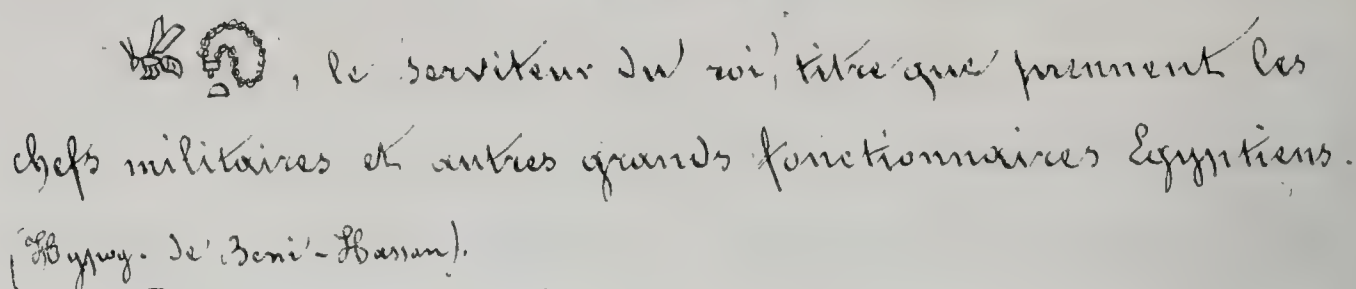 𓆤𓋧𓏏, le serviteur du roi, titre que prennent les
chefs militaires et autres grands fonctionnaires Egyptiens.
(Hypog. de Beni-Hassan).